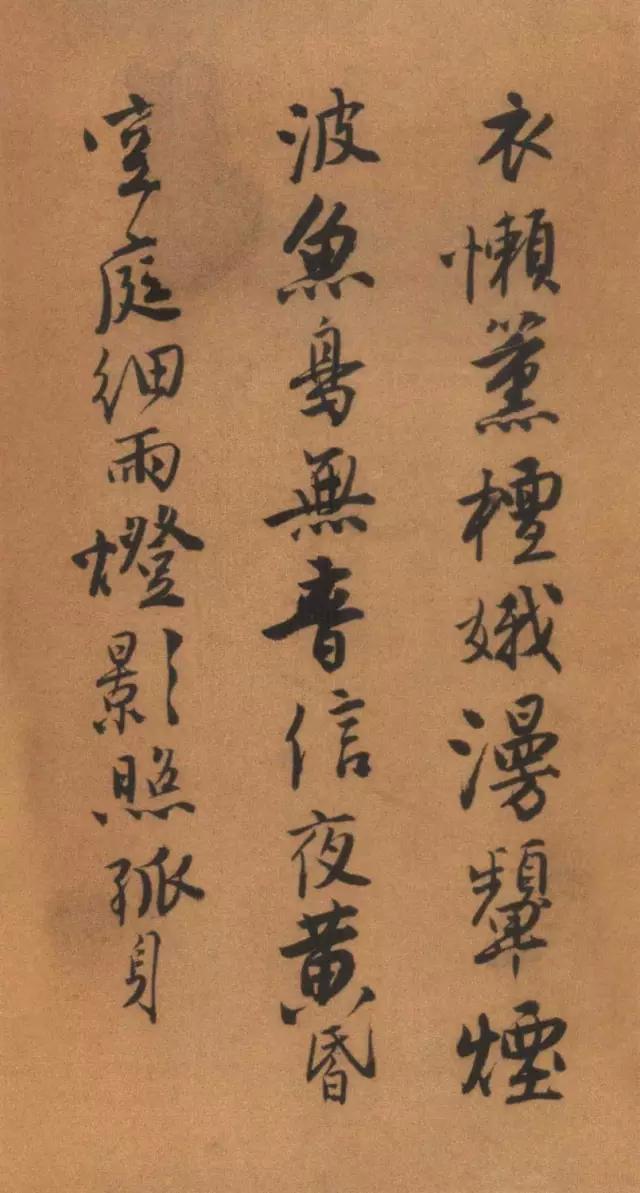 衣懶薰檀娥漫顰煙
波魚鳥無音信夜黄昬
空庭細雨燈影照孤身